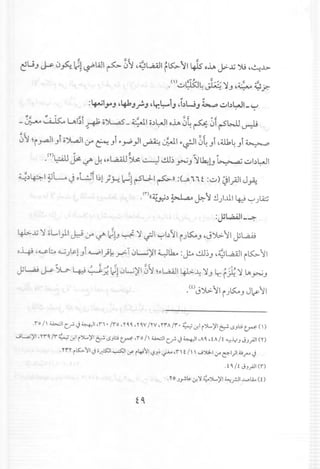 حديث، فلا تدخل هذه كلها الأحكام القضائية، لأن حكم القاضي إنما يكون على وقائع
جزئية معينة، ولا يتعلق بالكليات(١).
ب - العبادات صحة وفساداً، وأسبابها، وشروطها، وموانعها:
فليس للحاكم أن يحكم بأن هذه العبادة المعينة - كصلاة ظهر أداها مكلف معين -
صحيحة أو باطلة، أو بأن الشيء المعين ينقض الوضوء، أو يمنع من الصلاة أو الصوم؛ لأن
العبادات تصحيحاً وإبطالاً ونحو ذلك ليست محلاً للقضاء، بل هي محل للفتيا(٢).
يقول القرافي (ت: ٦٨٤هـ): «حكم الحاكم إنما يؤثر إذا أنشأه في مسألة اجتهادية
تتقارب فيها المدارك لأجل مصلحة دنيوية»(٣).
جـ - الفضائل:
فضائل الأخلاق، ومكارم الآداب التي لا تجب وإنما هي من قبيل المواساة لا تدخلها
الأحكام القضائية، وذلك مثل: مطالبة الإنسان آخر بإقراضه أو إعارته متاعه، فهذه
ونحوها لا يلزم بها ولا يدخلها القضاء؛ لأن الإنسان إنما يرغب فيها حملاً على فضائل
الأعمال ومكارم الأخلاق(٤).
(١) مجموع فتاوى شيخ الإسلام ابن تيمية ٣٠/ ٢٣٨، ٢٧/ ٢٩٧، ٢٩٩، ٣٥/ ٣٦٠، البهجة في شرح التحفة ١/ ٣٥.
(٢) الفروق وتهذيبه ٤/ ٤٨، ٨٩، البهجة في شرح التحفة ١/ ٣٥، مجموع فتاوى شيخ الإسلام ابن تيمية ٣/ ٢٣٩، الإنصاف
في معرفة الراجح من الخلاف ١١/ ٣١٤، مغني ذوي الأفهام عن الكتب الكثيرة في الأحكام ٢٣٢.
(٣) الفروق ٤/ ٤٩.
(٤) مقاصد الشريعة الإسلامية لابن عاشور ٢٥.
٤٩